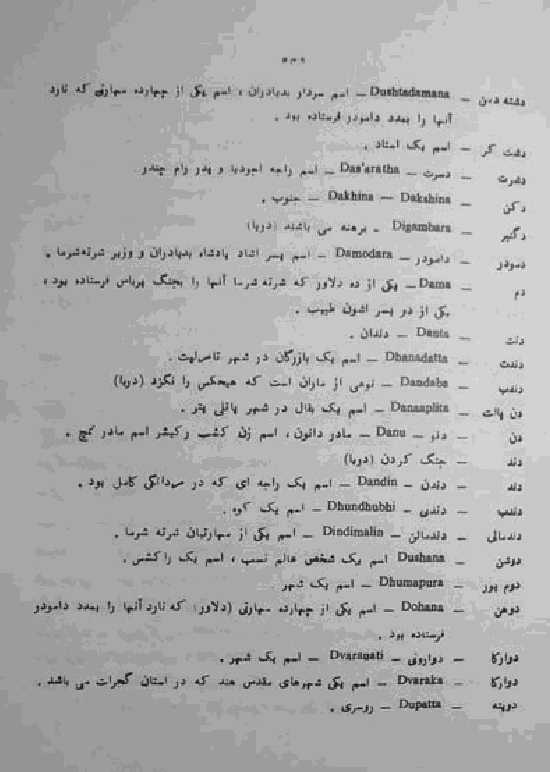 دشته دمن – Dushtadamana – اسم سردار بدیادران ، اسم یکی از چهارده مهارتی که نارد
آنها را بمدد دامودو فرستاده بود .
دشت کر – اسم یک استاد .
دشرت – دسرت – Das'aratha – اسم راجه اجودیا و پدر رام چندر .
دکن – Dakhina – Dakshina – جنوب .
دگمبر – Digambara – برهنه می باشند (دریا)
دمودر – دامودر – Damodara – اسم پسر اشاد پادشاه بدیادران و وزیر شرته شرما .
دم – Dama – یکی از ده دلاور که شرته شرما آنها را بجنگ پرباس فرستاده بود ،
یکی از دو پسر اشون طبیب .
دنت – Danta – دندان .
دندت – Dhanadatta – اسم یک بازرگان در شهر تامرلپت .
دندب – Dandaba – نوعی از ماران است که هیچکس را نگزد (دریا)
دن پالت – Danaaplita – اسم یک بقال در شهر پاتلی پتر .
دن – دنو – Danu – مادر دانون ، اسم زن کشب و کیشر اسم مادر نمچ .
دند – جنگ کردن (دریا)
دند – دندن – Dandin – اسم یک راجه ای که در مردانگی کامل بود .
دندب – دندبی – Dhundhubhi – اسم یک کوه .
دندمالی – دندمالن – Dindimalin – اسم یکی از مهارتیان شرته شرما .
دوشن – Dushana اسم یک شخص عالم نسب ، اسم یک راکشس .
دوم پور – Dhumapura – اسم یک شهر .
دوهن – Dohana – اسم یکی از چهارده مهارتی (دلاور) که نارد آنها را بمدد دامودو
فرستاده بود .
دوارکا – دواروتی – Dvaranati – اسم یک شهر .
دوارکا – Dvaraka – اسم یکی شهرهای مقدس هند که در استان گجرات می باشد .
دوپته – Dupatta – روسری .